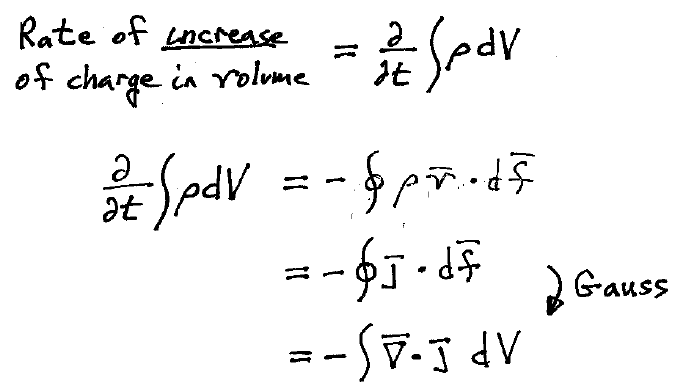 Rate of increase
of charge in volume = ∂/∂t ∫ρdV
∂/∂t ∫ρdV = -∮ρv̄·df̄
= -∮J̄·df̄
Gauss
= -∫∇̄·J̄ dV